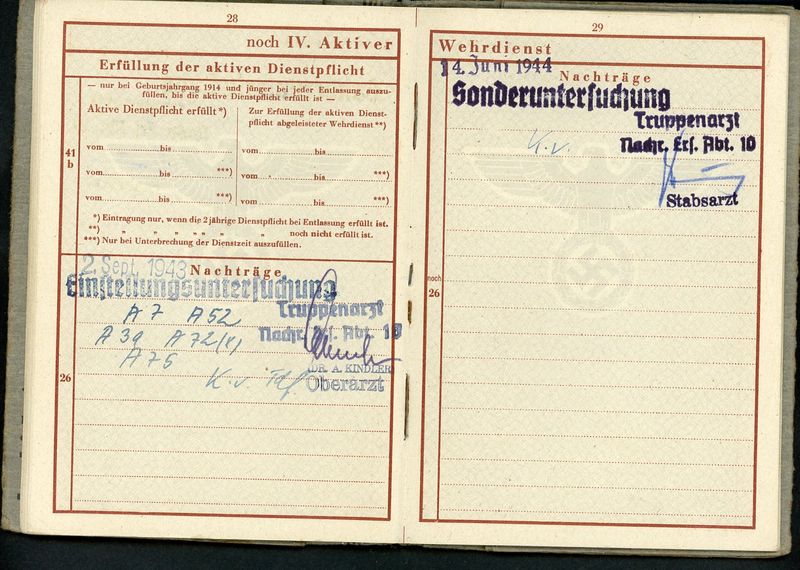 28
noch IV. Aktiver
Erfüllung der aktiven Dienstpflicht
— nur bei Geburtsjahrgang 1914 und jünger bei jeder Entlassung auszu-
füllen, bis die aktive Dienstpflicht erfüllt ist —
Aktive Dienstpflicht erfüllt*)
Zur Erfüllung der aktiven Dienst-
pflicht abgeleisteter Wehrdienst**)
41
b
vom bis
vom bis
vom bis ***)
vom bis ***)
vom bis ***)
vom bis ***)
*) Eintragung nur, wenn die 2jährige Dienstpflicht bei Entlassung erfüllt ist.
**) „ „ „ „ „ „ „ noch nicht erfüllt ist.
***) Nur bei Unterbrechung der Dienstzeit auszufüllen.
2. Sept. 1943
Nachträge
Einstellungsuntersuchung
Truppenarzt
A 7 A 52
Nachr. Ers. Abt. 10
A 39 A 72(x)
A 75
(DR. A. KINDLER)
26
K.v.
Oberarzt
29
Wehrdienst
14. Juni 1944
Nachträge
Sonderuntersuchung
Truppenarzt
K.v.
Nachr. Ers. Abt. 10
Stabsarzt
noch
26